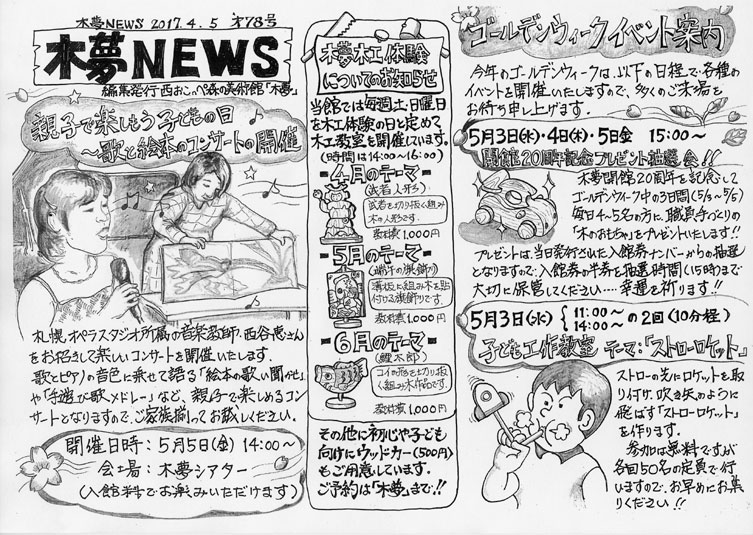 木夢NEWS 2017.4.5 第78号
木夢NEWS
編集発行 西おこっぺ森の美術館「木夢」
親子で楽しもう子どもの日
～歌と絵本のコンサートの開催
札幌オペラスタジオ所属の音楽教師、西谷恵さん
をお招きして楽しいコンサートを開催いたします。
歌とピアノの音色に乗せて語る「絵本の歌い聞かせ」
や「手遊び歌メドレー」など、親子で楽しめるコン
サートとなりますので、ご家族揃ってお越しください。
開催日時：5月5日(金) 14:00～
会場：木夢シアター
(入館料でお楽しみいただけます)
木夢木工体験
についてのお知らせ
当館では毎週土・日曜日
を木工体験の日と定めて
木工教室を開催しています。
(時間は14:00～16:00)
4月のテーマ
(武者人形)
武者を切り抜く組み
木の人形です。
教材費 1,000円
5月のテーマ
(端午の旗飾り)
薄板に組み木を貼
付ける旗飾りです。
教材費 1,000円
6月のテーマ
(鯉太郎)
コイの形を切り抜
く組み木作品です。
教材費 1,000円
その他に初心や子ども
向けにウッドカー(500円)
もご用意しています。
ご予約は「木夢」まで!!
ゴールデンウィークイベント案内
今年のゴールデンウィークは、以下の日程で各種の
イベントを開催いたしますので、多くのご来場を
お待ち申し上げます。
5月3日(水)・4日(木)・5日金 15:00～
開館20周年記念プレゼント抽選会!!
木夢開館20周年を記念して
ゴールデンウィーク中の3日間(5/3～5/5)
毎日4～5名の方に、職員手づくりの
「木のおもちゃ」をプレゼントいたします!!
プレゼントは、当日発行された入館券ナンバーからの抽選
となりますので、入館券の半券を抽選時間(15時)まで
大切に保管してください…幸運を祈ります!!
5月3日(水) 11:00～
14:00～ の2回(10分程)
子ども工作教室 テーマ：「ストローロケット」
ストローの先にロケットを取
り付け、吹き矢のように
飛ばす「ストローロケット」
を作ります。
参加は無料ですが
各回50名の定員で行
いますので、お早めにお集
りください!!